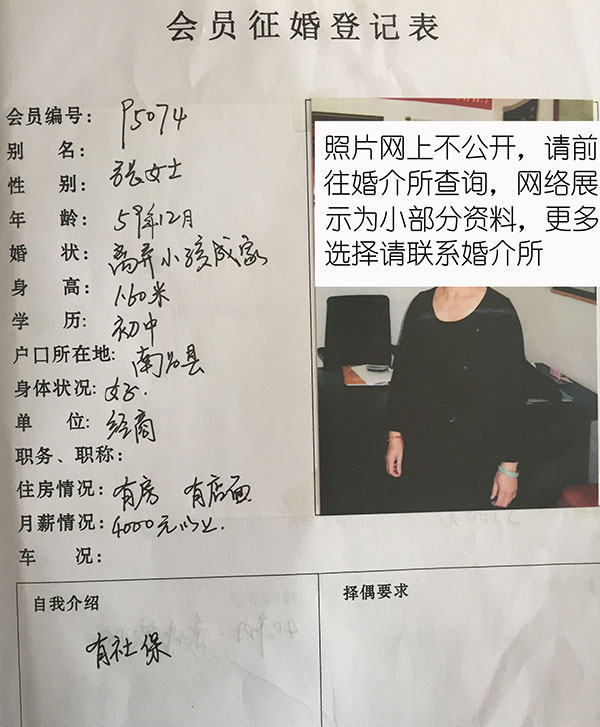 会员征婚登记表
会员编号：P5074
别 名：
性 别：张女士
年 龄：59年12月
婚 状：离异小孩成家
身 高：1.60米
学 历：初中
户口所在地：南昌县
身体状况：好.
单 位：经商
职务、职称：
住房情况：有房 有店面
月薪情况：4000元以上.
车 况：
照片网上不公开，请前
往婚介所查询，网络展
示为小部分资料，更多
选择请联系婚介所
自我介绍
有社保
择偶要求